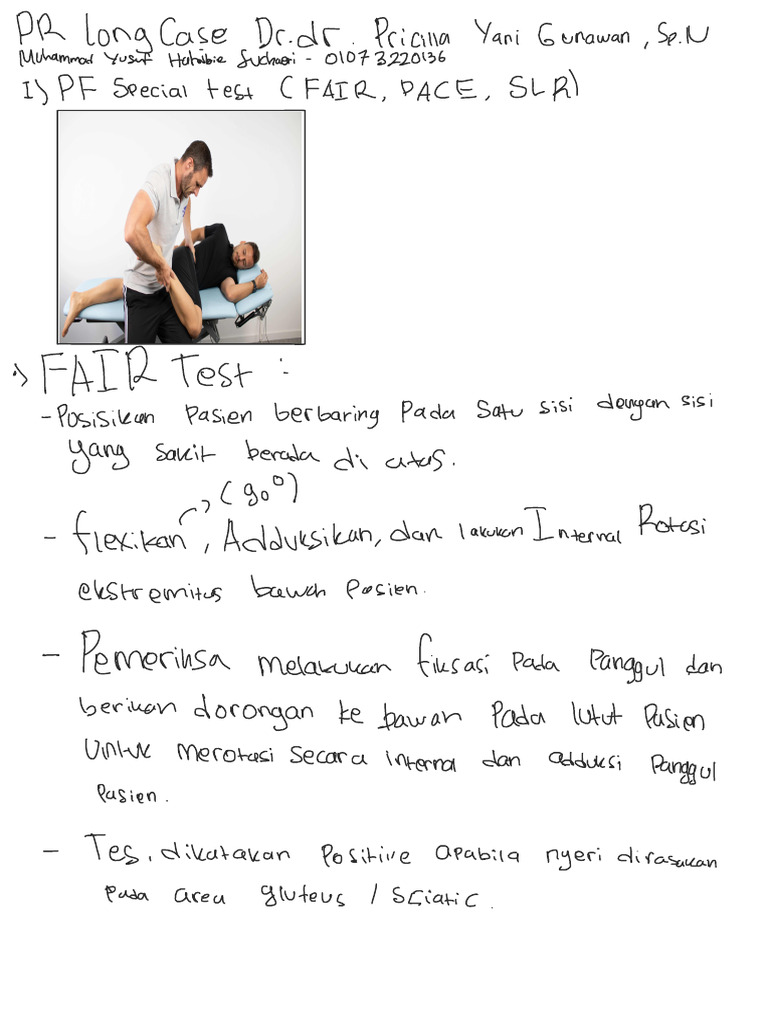 PR Long Case Dr.dr. Pricilla Yani Gunawan, Sp.N
Muhammad Yusuf Habibie Suchaeri - 01073220136
I) PF Special test (FAIR, PACE, SLR)
FAIR Test :
- Posisikan Pasien berbaring Pada Satu sisi dengan sisi
yang sakit berada di atas.
(90°)
- flexikan, Adduksikan, dan lakukan Internal Rotasi
ekstremitas bawah Pasien.
- Pemeriksa melakukan fiksasi Pada Panggul dan
berikan dorongan ke bawah Pada lutut Pasien
Untuk merotasi secara internal dan adduksi Panggul
Pasien.
- Tes, dikatakan Positive apabila nyeri dirasakan
Pada area gluteus / Sciatic.